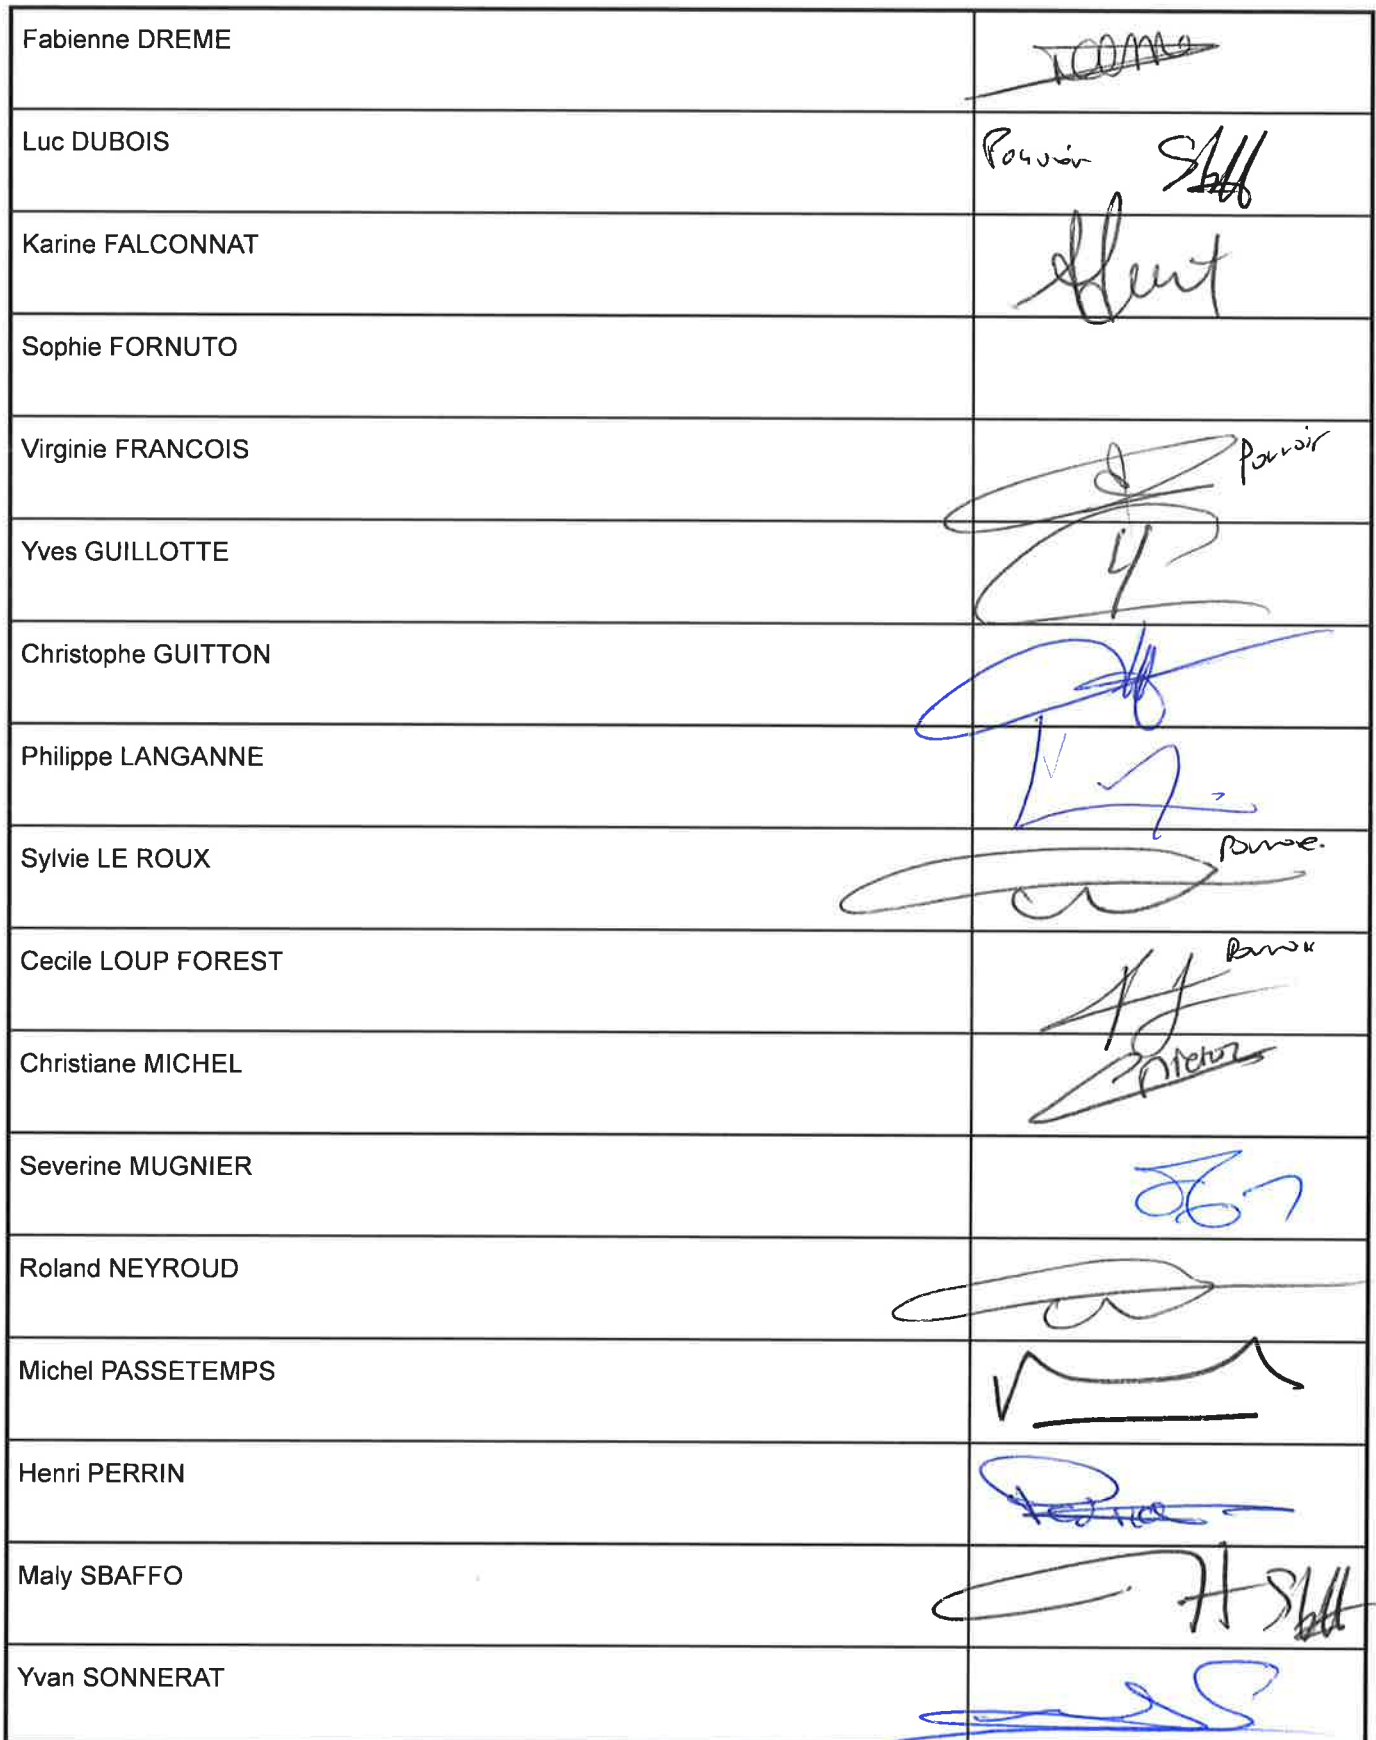 Fabienne DREME
Luc DUBOIS
Pouvoir
Karine FALCONNAT
Sophie FORNUTO
Virginie FRANCOIS
Pouvoir
Yves GUILLOTTE
Christophe GUITTON
Philippe LANGANNE
Sylvie LE ROUX
Cecile LOUP FOREST
Christiane MICHEL
Severine MUGNIER
Roland NEYROUD
Michel PASSETEMPS
Henri PERRIN
Maly SBAFFO
Yvan SONNERAT